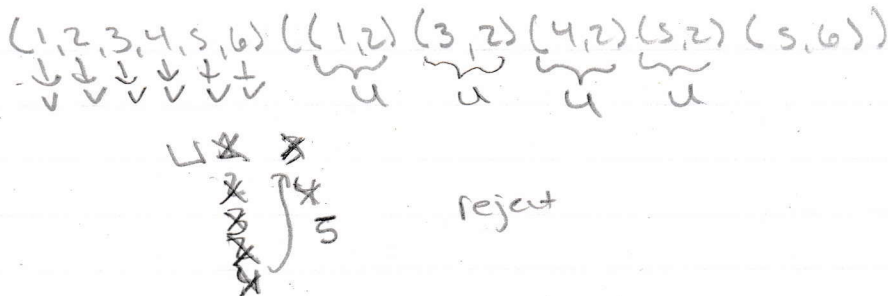 (1,2,3,4,5,6) ((1,2) (3,2) (4,2) (5,2) (5,6))
↓ ↓ ↓ ↓ ↓ ↓
v v v v v v u u u u
4
5
reject